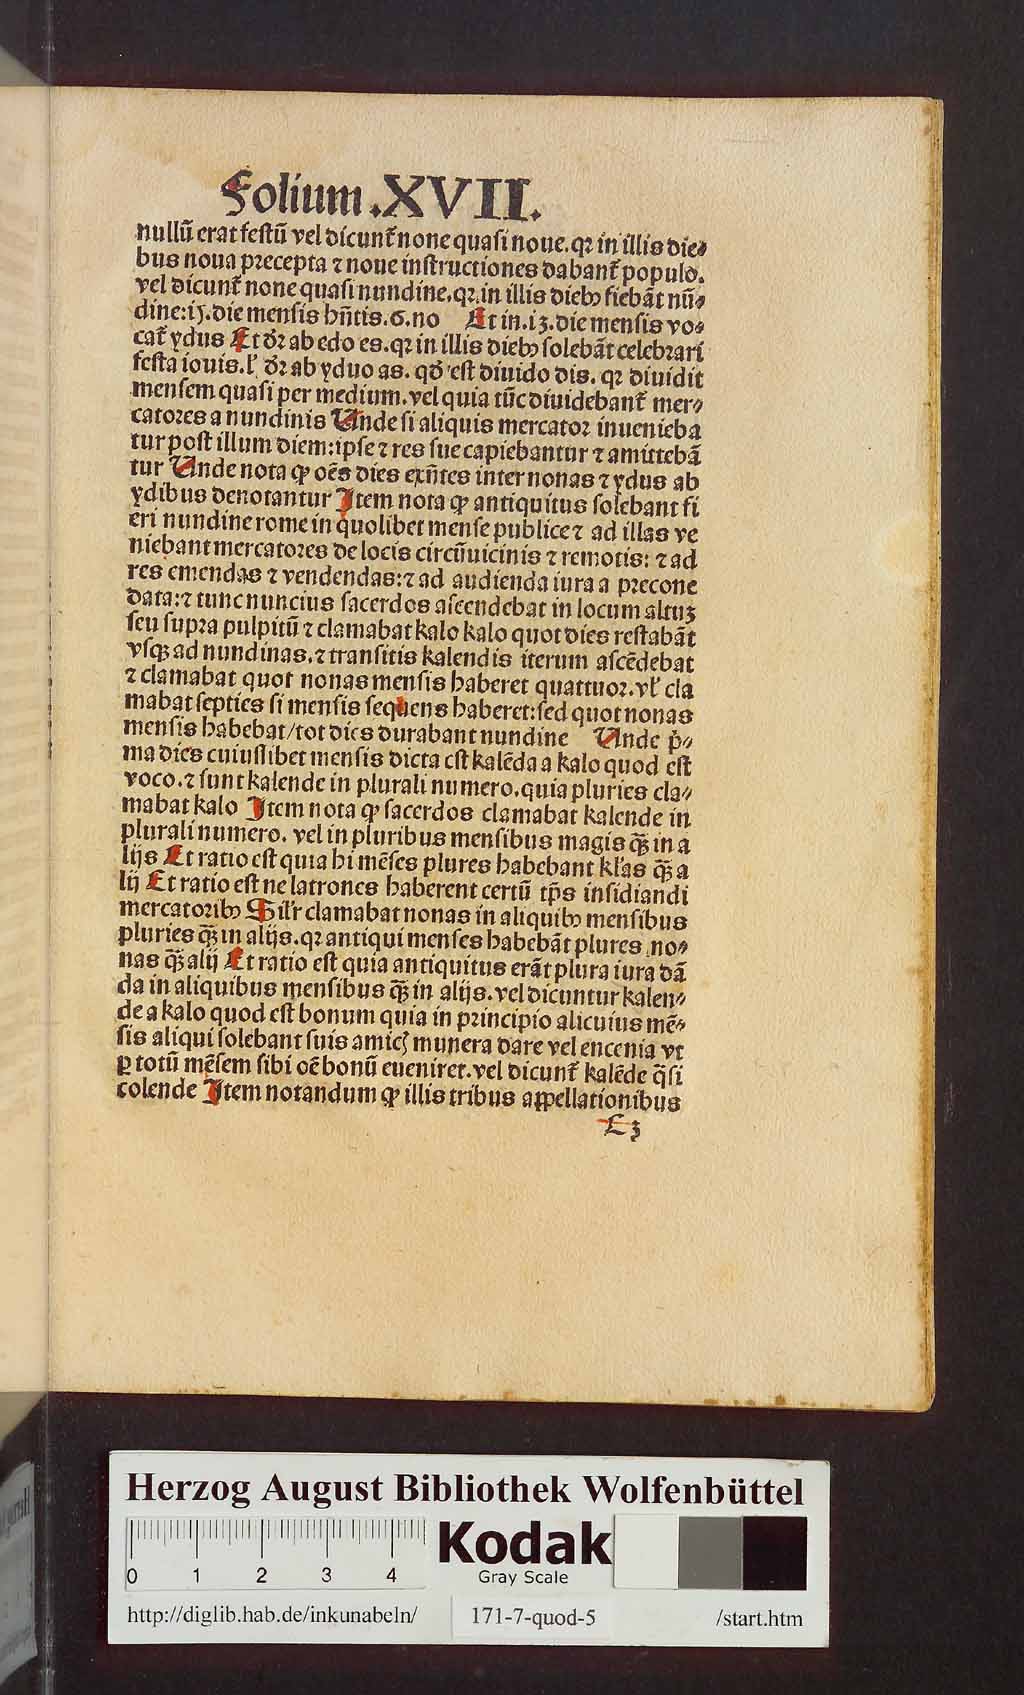 Folium .XVII.
nullū erat festū vel dicunt̃ none quasi noue. qꝛ in illis die⸗
bus noua precepta ⁊ noue instructiones dabant̃ populo.
vel dicunt̃ none quasi nundine. qꝛ. in illis dieb⁹ fiebāt nū⸗
dine: ij. die mensis hn̄tis. 6. no Et in. iʒ. die mensis vo⸗
cat̃ ydus Et dr̄ ab edo es. qꝛ in illis dieb⁹ solebāt celebrari
festa iouis. l̕ dr̄ ab yduo as. qd̕ est diuido dis. qꝛ diuidit
mensem quasi per medium. vel quia tūc diuidebant̃ mer⸗
catores a nundinis Unde si aliquis mercator inuenieba
tur post illum diem: ipse ⁊ res sue capiebantur ⁊ amittebā
tur Unde nota ꝙ oēs dies exn̄tes inter nonas ⁊ ydus ab
ydibus denotantur Item nota ꝙ antiquitus solebant fi
eri nundine rome in quolibet mense publice ⁊ ad illas ve
niebant mercatores de locis circūuicinis ⁊ remotis: ⁊ ad
res emendas ⁊ vendendas: ⁊ ad audienda iura a precone
data: ⁊ tunc nuncius sacerdos ascendebat in locum altuʒ
seu supra pulpitū ⁊ clamabat kalo kalo quot dies restabāt
vsqʒ ad nundinas. ⁊ transitis kalendis iterum ascēdebat
⁊ clamabat quot nonas mensis haberet quattuor. vl̕ cla
mabat septies si mensis sequens haberet: sed quot nonas
mensis habebat/tot dies durabant nundine Unde p̄⸗
ma dies cuiuslibet mensis dicta est kalēda a kalo quod est
voco. ⁊ sunt kalende in plurali numero. quia pluries cla⸗
mabat kalo Item nota ꝙ sacerdos clamabat kalende in
plurali numero. vel in pluribus mensibus magis q̄ʒ in a
lijs Et ratio est quia hi mēses plures habebant kl̕as q̄ʒ a
lij Et ratio est ne latrones haberent certū tp̄s insidiandi
mercatorib⁹ Sil̕r clamabat nonas in aliquib⁹ mensibus
pluries q̄ʒ in alijs. qꝛ antiqui menses habebāt plures no⸗
nas q̄ʒ alij Et ratio est quia antiquitus erāt plura iura dā
da in aliquibus mensibus q̄ʒ in alijs. vel dicuntur kalen⸗
de a kalo quod est bonum quia in principio alicuius mē⸗
sis aliqui solebant suis amicꝭ munera dare vel encenia vt
ꝑ totū mēsem sibi oē bonū eueniret. vel dicunt̃ kalēde q̄si
colende Item notandum ꝙ illis tribus appellationibus
Eʒ
Herzog August Bibliothek Wolfenbüttel
0 1 2 3 4
Kodak
Gray Scale
http://diglib.hab.de/inkunabeln/ 171-7-quod-5 /start.htm